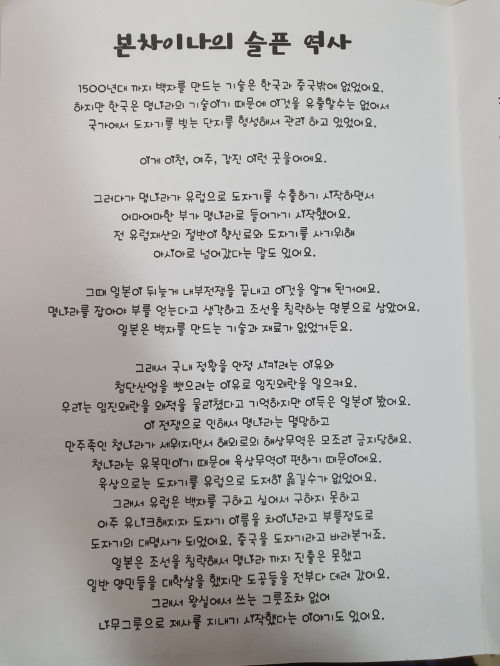 본차이나의 슬픈 역사
1500년대 까지 백자를 만드는 기술은 한국과 중국밖에 없었어요.
하지만 한국은 명나라의 기술이기 때문에 이것을 유출할수는 없어서
국가에서 도자기를 빚는 단지를 형성해서 관리 하고 있었어요.
이게 이천, 여주, 강진 이런 곳들이에요.
그러다가 명나라가 유럽으로 도자기를 수출하기 시작하면서
어마어마한 부가 명나라로 들어가기 시작했어요.
전 유럽재산의 절반이 향신료와 도자기를 사기위해
아시아로 넘어갔다는 말도 있어요.
그때 일본이 뒤늦게 내부전쟁을 끝내고 이것을 알게 된거에요.
명나라를 잡아야 부를 얻는다고 생각하고 조선을 침략하는 명분으로 삼았어요.
일본은 백자를 만드는 기술과 재료가 없었거든요.
그래서 국내 정황을 안정 시키려는 이유와
첨단산업을 뺏으려는 이유로 임진왜란을 일으켜요.
우리는 임진왜란을 왜적을 물리쳤다고 기억하지만 이득은 일본이 봤어요.
이 전쟁으로 인해서 명나라는 멸망하고
만주족인 청나라가 세워지면서 해외로의 해상무역은 모조리 금지당해요.
청나라는 유목민이기 때문에 육상무역이 편하기 때문이에요.
육상으로는 도자기를 유럽으로 도저히 옮길수가 없었어요.
그래서 유럽은 백자를 구하고 싶어서 구하지 못하고
아주 유니크해지자 도자기 이름을 차이나라고 부를정도로
도자기의 대명사가 되었어요. 중국을 도자기라고 바라본거죠.
일본은 조선을 침략해서 명나라 까지 진출은 못했고
일반 양민들을 대학살을 했지만 도공들을 전부다 데려 갔어요.
그래서 왕실에서 쓰는 그릇조차 없어
나무그릇으로 제사를 지내기 시작했다는 이야기도 있어요.